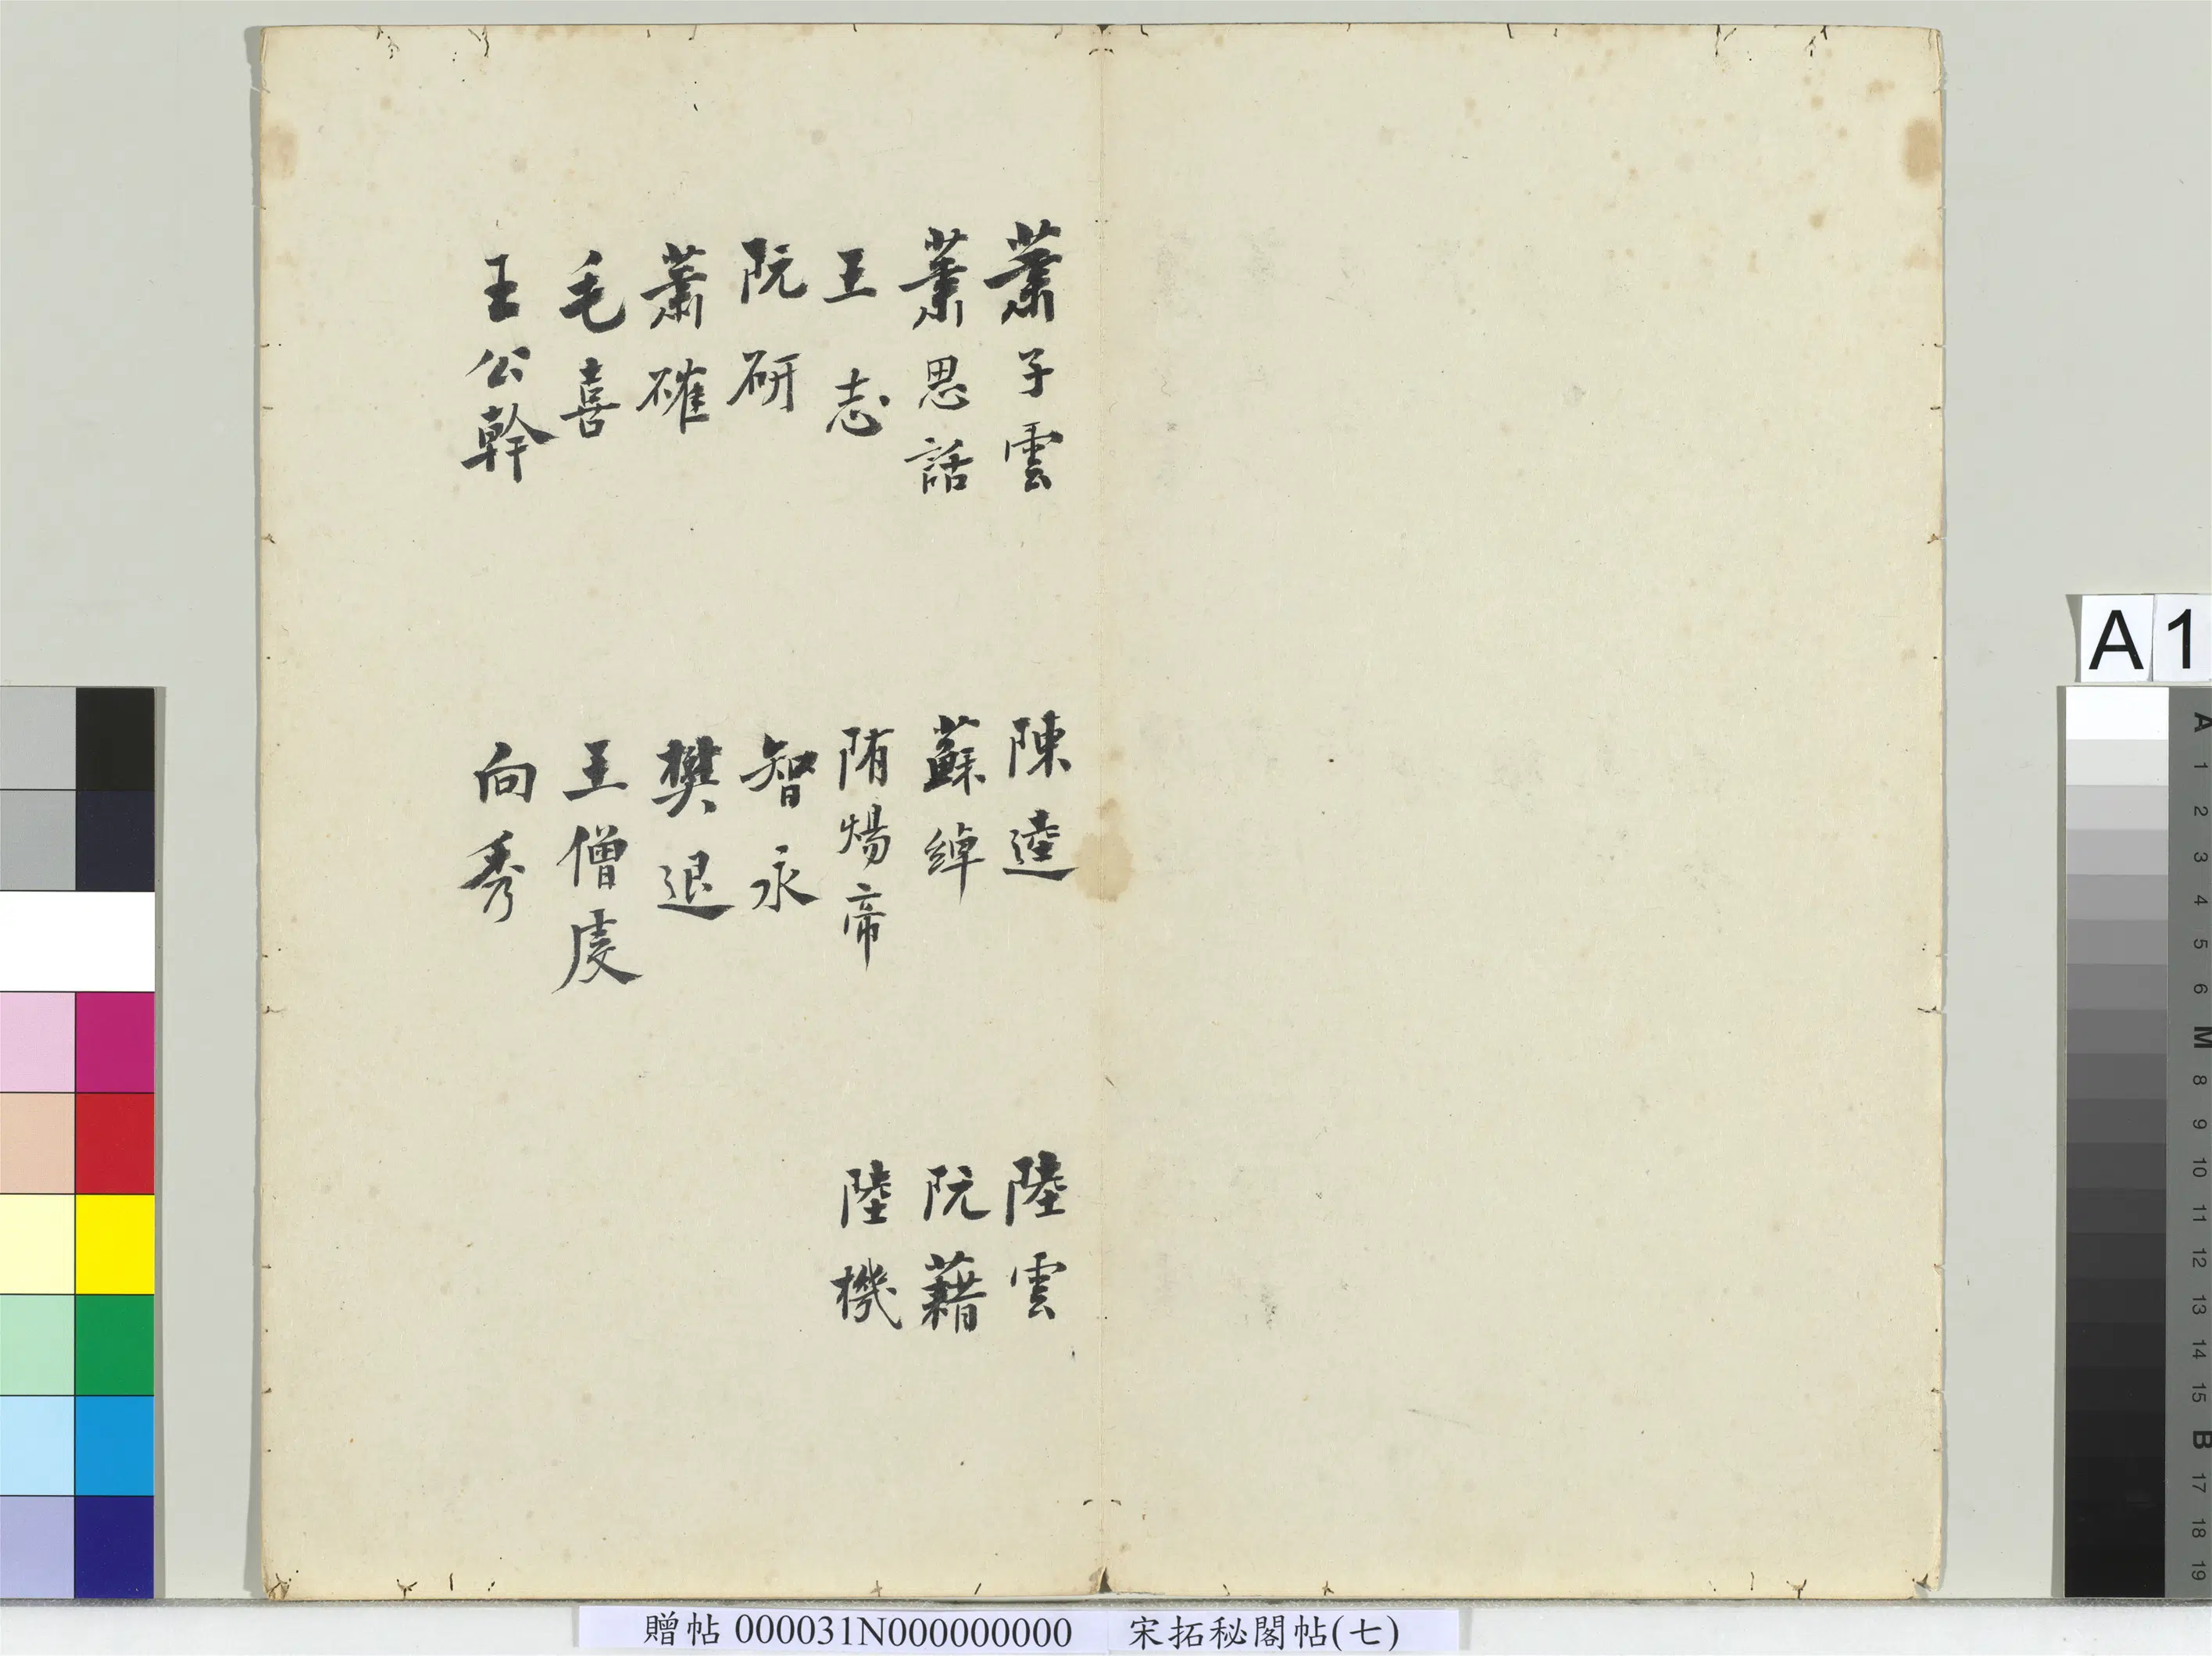 蕭子雲
蕭思話
王志
阮研
蕭確
毛喜
王公幹
陳逵
蘇綽
隋煬帝
智永
樊退
王僧虔
向秀
陸雲
阮藉
陸機
A 1
A
1
2
3
4
5
6
M
8
9
10
11
12
13
14
15
B
17
18
19
贈帖 000031N000000000 宋拓秘閣帖(七)